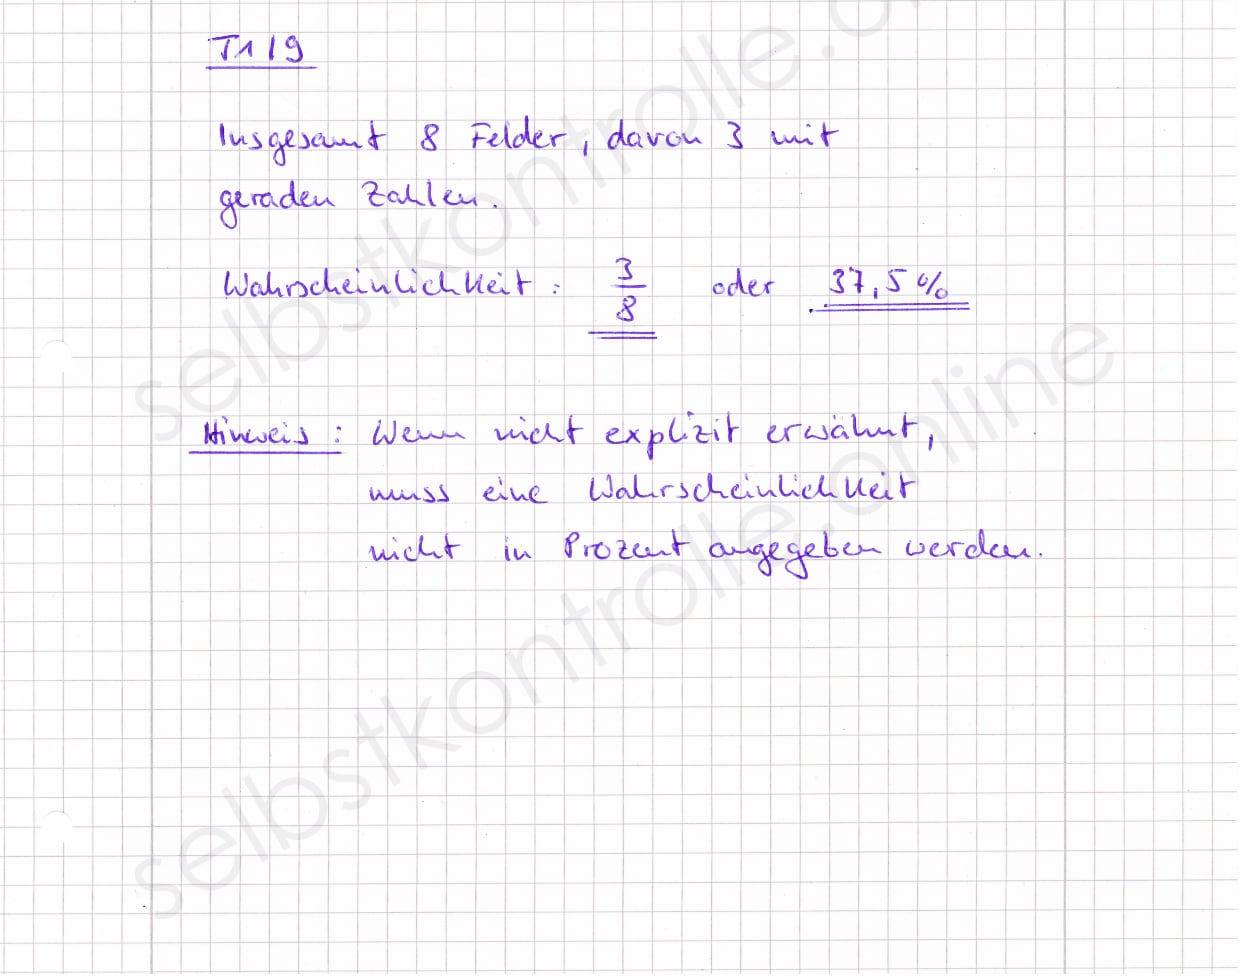 T1/9
Insgesamt 8 Felder, davon 3 mit
geraden Zahlen.
Wahrscheinlichkeit: 3/8 oder 37,5%
Hinweis: Wenn nicht explizit erwähnt,
muss eine Wahrscheinlichkeit
nicht in Prozent angegeben werden.
selbstkontrolle.online
selbstkontrolle.online